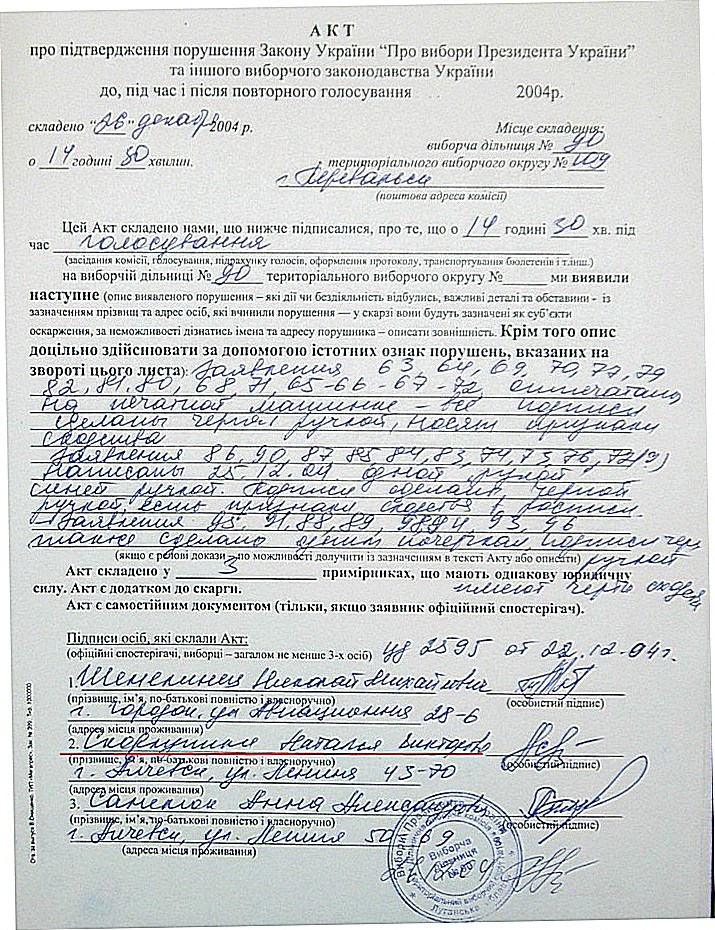 АКТ
про підтвердження порушення Закону України “Про вибори Президента України”
та іншого виборчого законодавства України
до, під час і після повторного голосування 2004р.
складено “26” декабря 2004 р.
Місце складення:
виборча дільниця № 90
о 14 годині 30 хвилин.
територіального виборчого округу № 109
г. Перевальск
(поштова адреса комісії)
Цей Акт складено нами, що нижче підписалися, про те, що о 14 годині 30 хв. під
час голосування
(засідання комісії, голосування, підрахунку голосів, оформлення протоколу, транспортування бюлетенів і т.інш.)
на виборчій дільниці № 90 територіального виборчого округу № ми виявили
наступне (опис виявленого порушення – які дії чи бездіяльність відбулись, важливі деталі та обставини - із
зазначенням прізвищ та адрес осіб, які вчинили порушення — у скарзі вони будуть зазначені як суб'єкти
оскарження, за неможливості дізнатись імена та адресу порушника – описати зовнішність. Крім того опис
доцільно здійснювати за допомогою істотних ознак порушень, вказаних на
звороті цього листа): Заявления 63, 64, 69, 70, 77, 79
82, 81, 80, 68, 71, 65-66-67-72, отпечатаны
на печатной машинке – все подписи
сделаны черной ручкой, носят признаки
сходства
Заявления 86, 90, 87 85 84, 83, 74, 73, 76, 72(?)
написаны 25.12.04 одной рукой
синей ручкой. Подписи сделаны черной
ручкой, есть признаки сходства в росписи.
Заявления 95, 91, 88, 89, 94, 93, 96
также сделано одним почерком, подписи чер
(якщо є речові докази – по можливості долучити із зазначенням в тексті Акту або описати) ручкой
Акт складено у 3 примірниках, що мають однакову юридичну
силу. Акт є додатком до скарги. имеют черты сходства
Акт є самостійним документом (тільки, якщо заявник офіційний спостерігач).
Підписи осіб, які склали Акт:
(офіційні спостерігачі, виборці – загалом не менше 3-х осіб) уд 2595 от 22.12.04г.
1. Николай Михайлович
(прізвище, ім'я, по-батькові повністю і власноручно) (особистий підпис)
г. ул Авиационная 28-6
(адреса місця проживання)
2. Наталья Викторовна
(прізвище, ім'я, по-батькові повністю і власноручно) (особистий підпис)
г. Алчевск, ул. Ленина 43-70
(адреса місця проживання)
3. Анна Александровна
(прізвище, ім'я, по-батькові повністю і власноручно) (особистий підпис)
г. Алчевск, ул. Ленина 50 69
(адреса місця проживання)
Виборча
дільниця